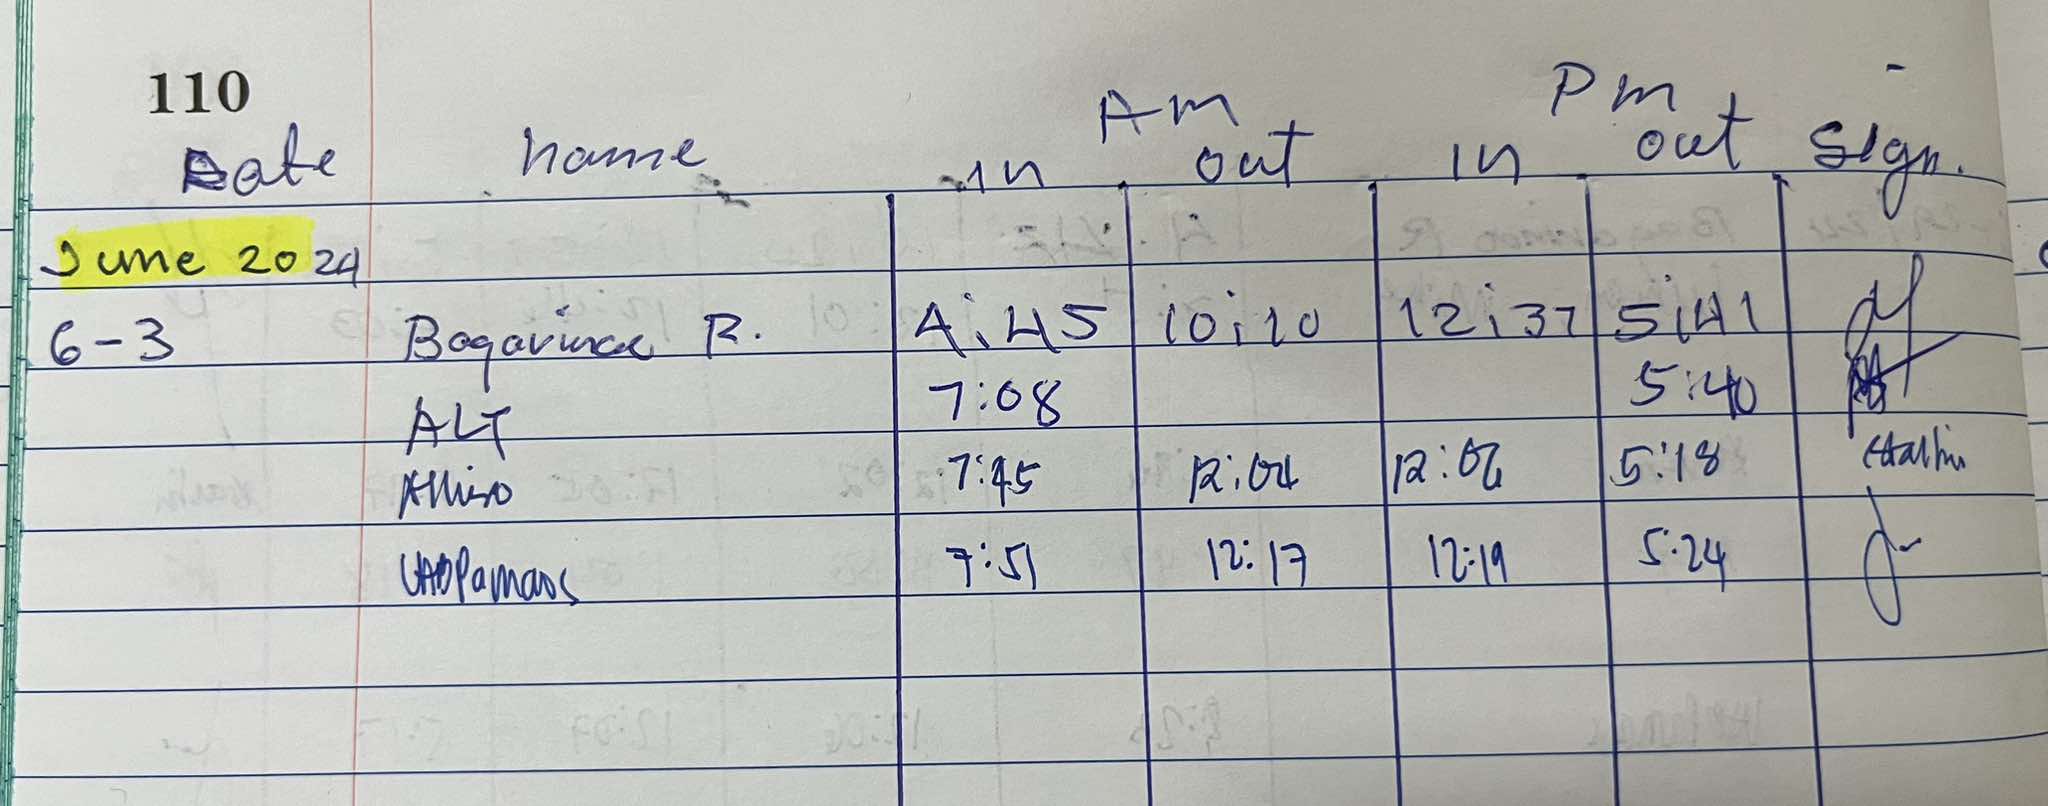 110
Am Pm
Date name in out in out Sign.
June 2024
6-3 R. 4:45 10:10 12:37 5:41
ALT 7:08 5:40
7:45 12:04 12:06 5:18
7:51 12:17 12:19 5.24